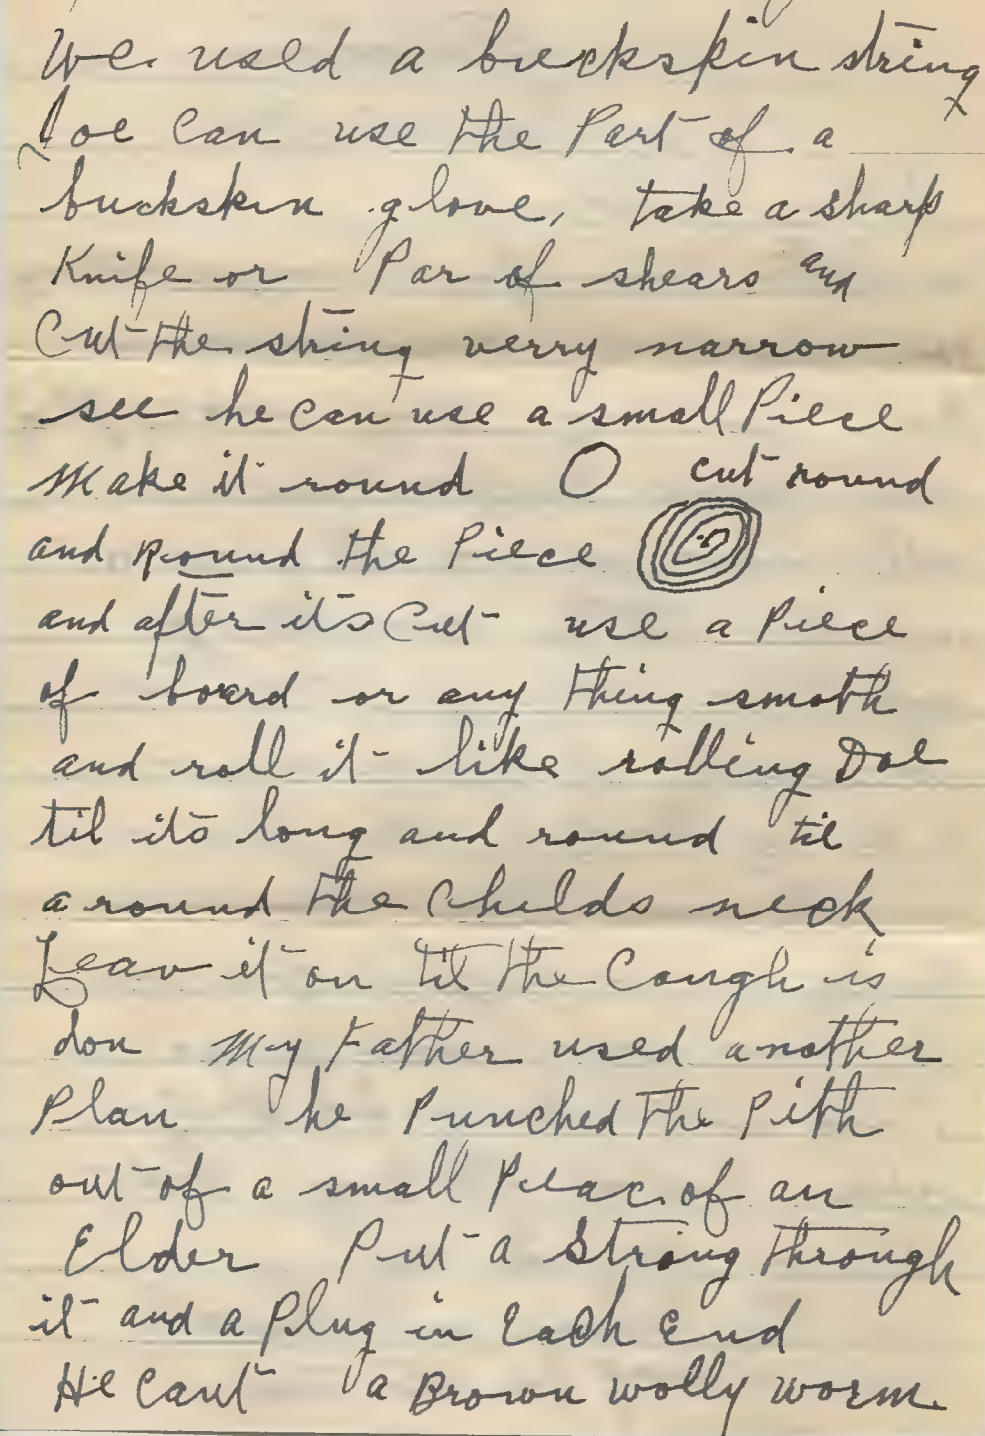 We used a buckskin string
Joe can use the Part of a
buckskin glove, take a sharp
Knife or Par of shears and
Cut the string verry narrow
see he can use a small Piece
Make it round O cut round
and Round the Piece
and after its Cut use a Piece
of board or any thing smoth
and roll it like rolling Doe
til its long and round tie
around the Childs neck
Leav it on til the Cough is
don My Father used another
Plan he Punched the Pith
out of a small Peac of an
Elder Put a String through
it and a Plug in Each End
He Caut a Brown wolly worm